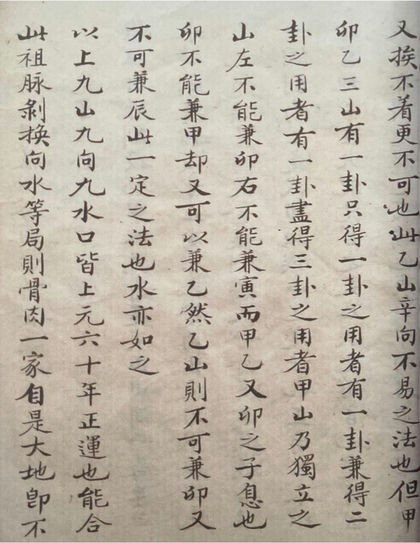 又挨不着更不可也此乙山辛向不易之法也但甲
卯乙三山有一卦只得一卦之用者有一卦兼得二
卦之用者有一卦盡得三卦之用者甲山乃獨立之
山左不能兼卯右不能兼寅而甲乙又卯之子息也
卯不能兼甲却又可以兼乙然乙山則不可兼卯又
不可兼辰此一定之法也水亦如之
以上九山九向九水口皆上元六十年正運也能合
此祖脉剝換向水等局則骨肉一家自是大地卽不